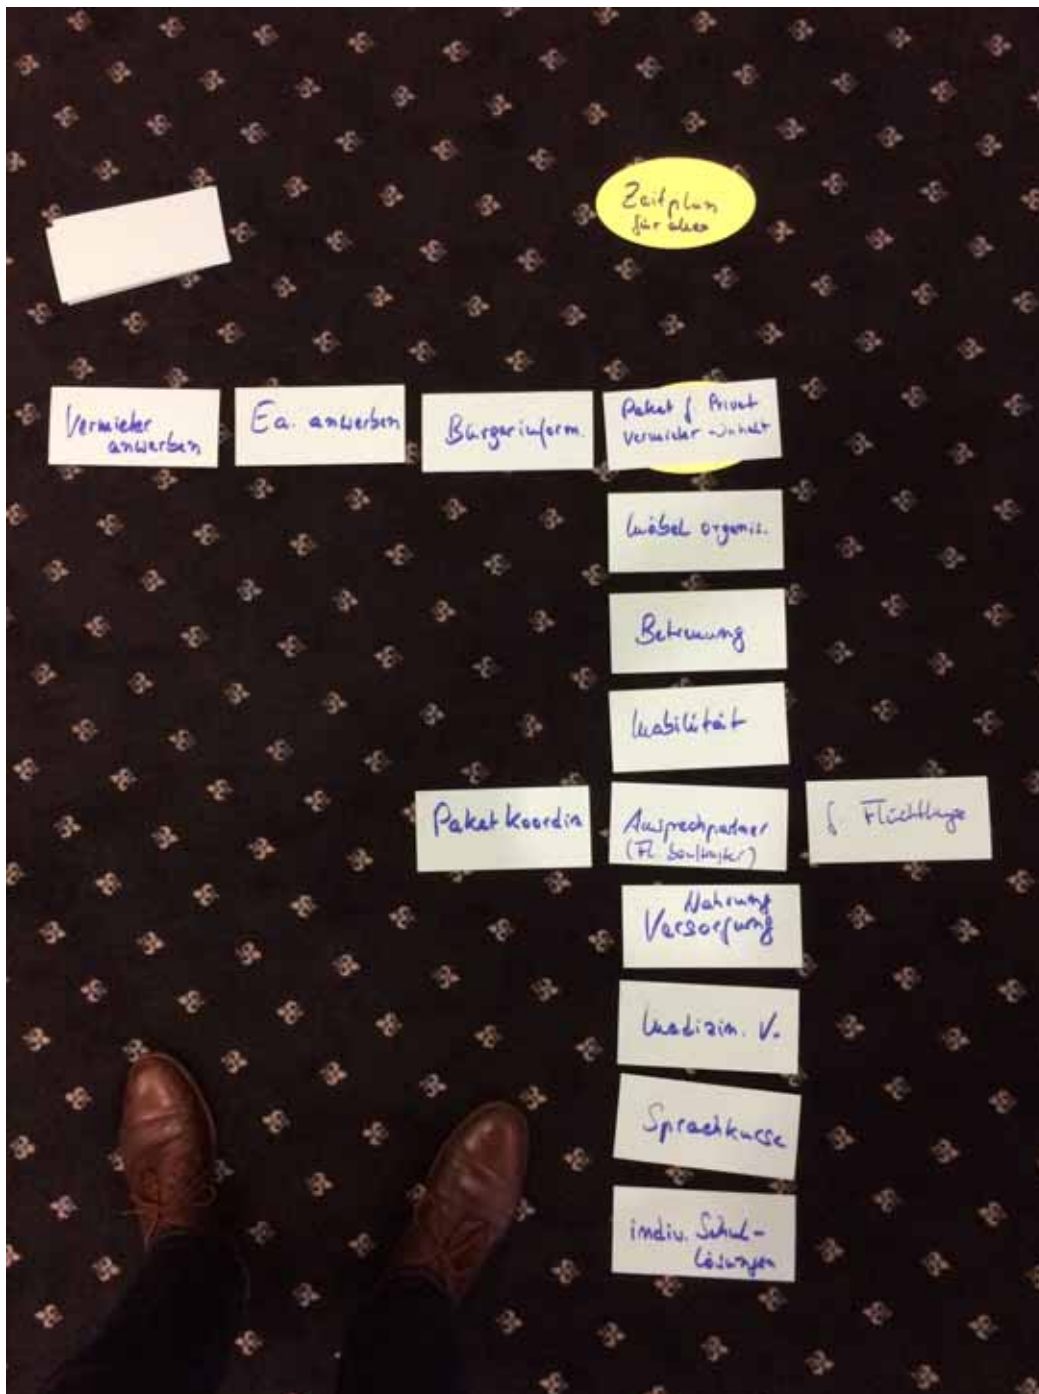 Zeitplan
für alles
Vermieter
anwerben
Ea. anwerben
Bürgerinform.
Paket f Privat
Vermieter
Möbel organis.
Betreuung
Mobilität
Paket Koordin
Ansprechpartner
(Fl.
f. Flüchtlinge
Nahrung
Versorgung
Medizin. V.
Sprachkurse
indiv. Schul-
Lösungen